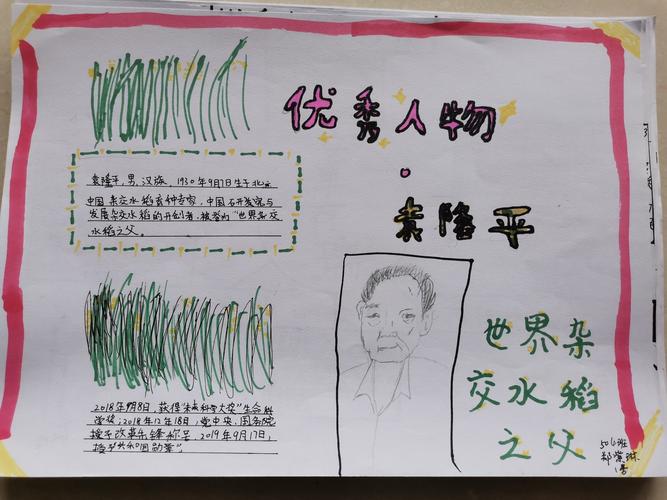 优秀人物
·
袁隆平
袁隆平,男,汉族,1930年9月7日生于北京
中国杂交水稻育种专家,中国研究与
发展杂交水稻的开创者,被誉为"世界杂交
水稻之父。
2018年9月8日,获得未来科学大奖"生命科
学奖;2018年12月18日,党中央、国务院
授予改革先锋称号,2019年9月17日,
授予"共和国勋章"。
世界杂
交水稻
之父
506班
郑紫琳
1号